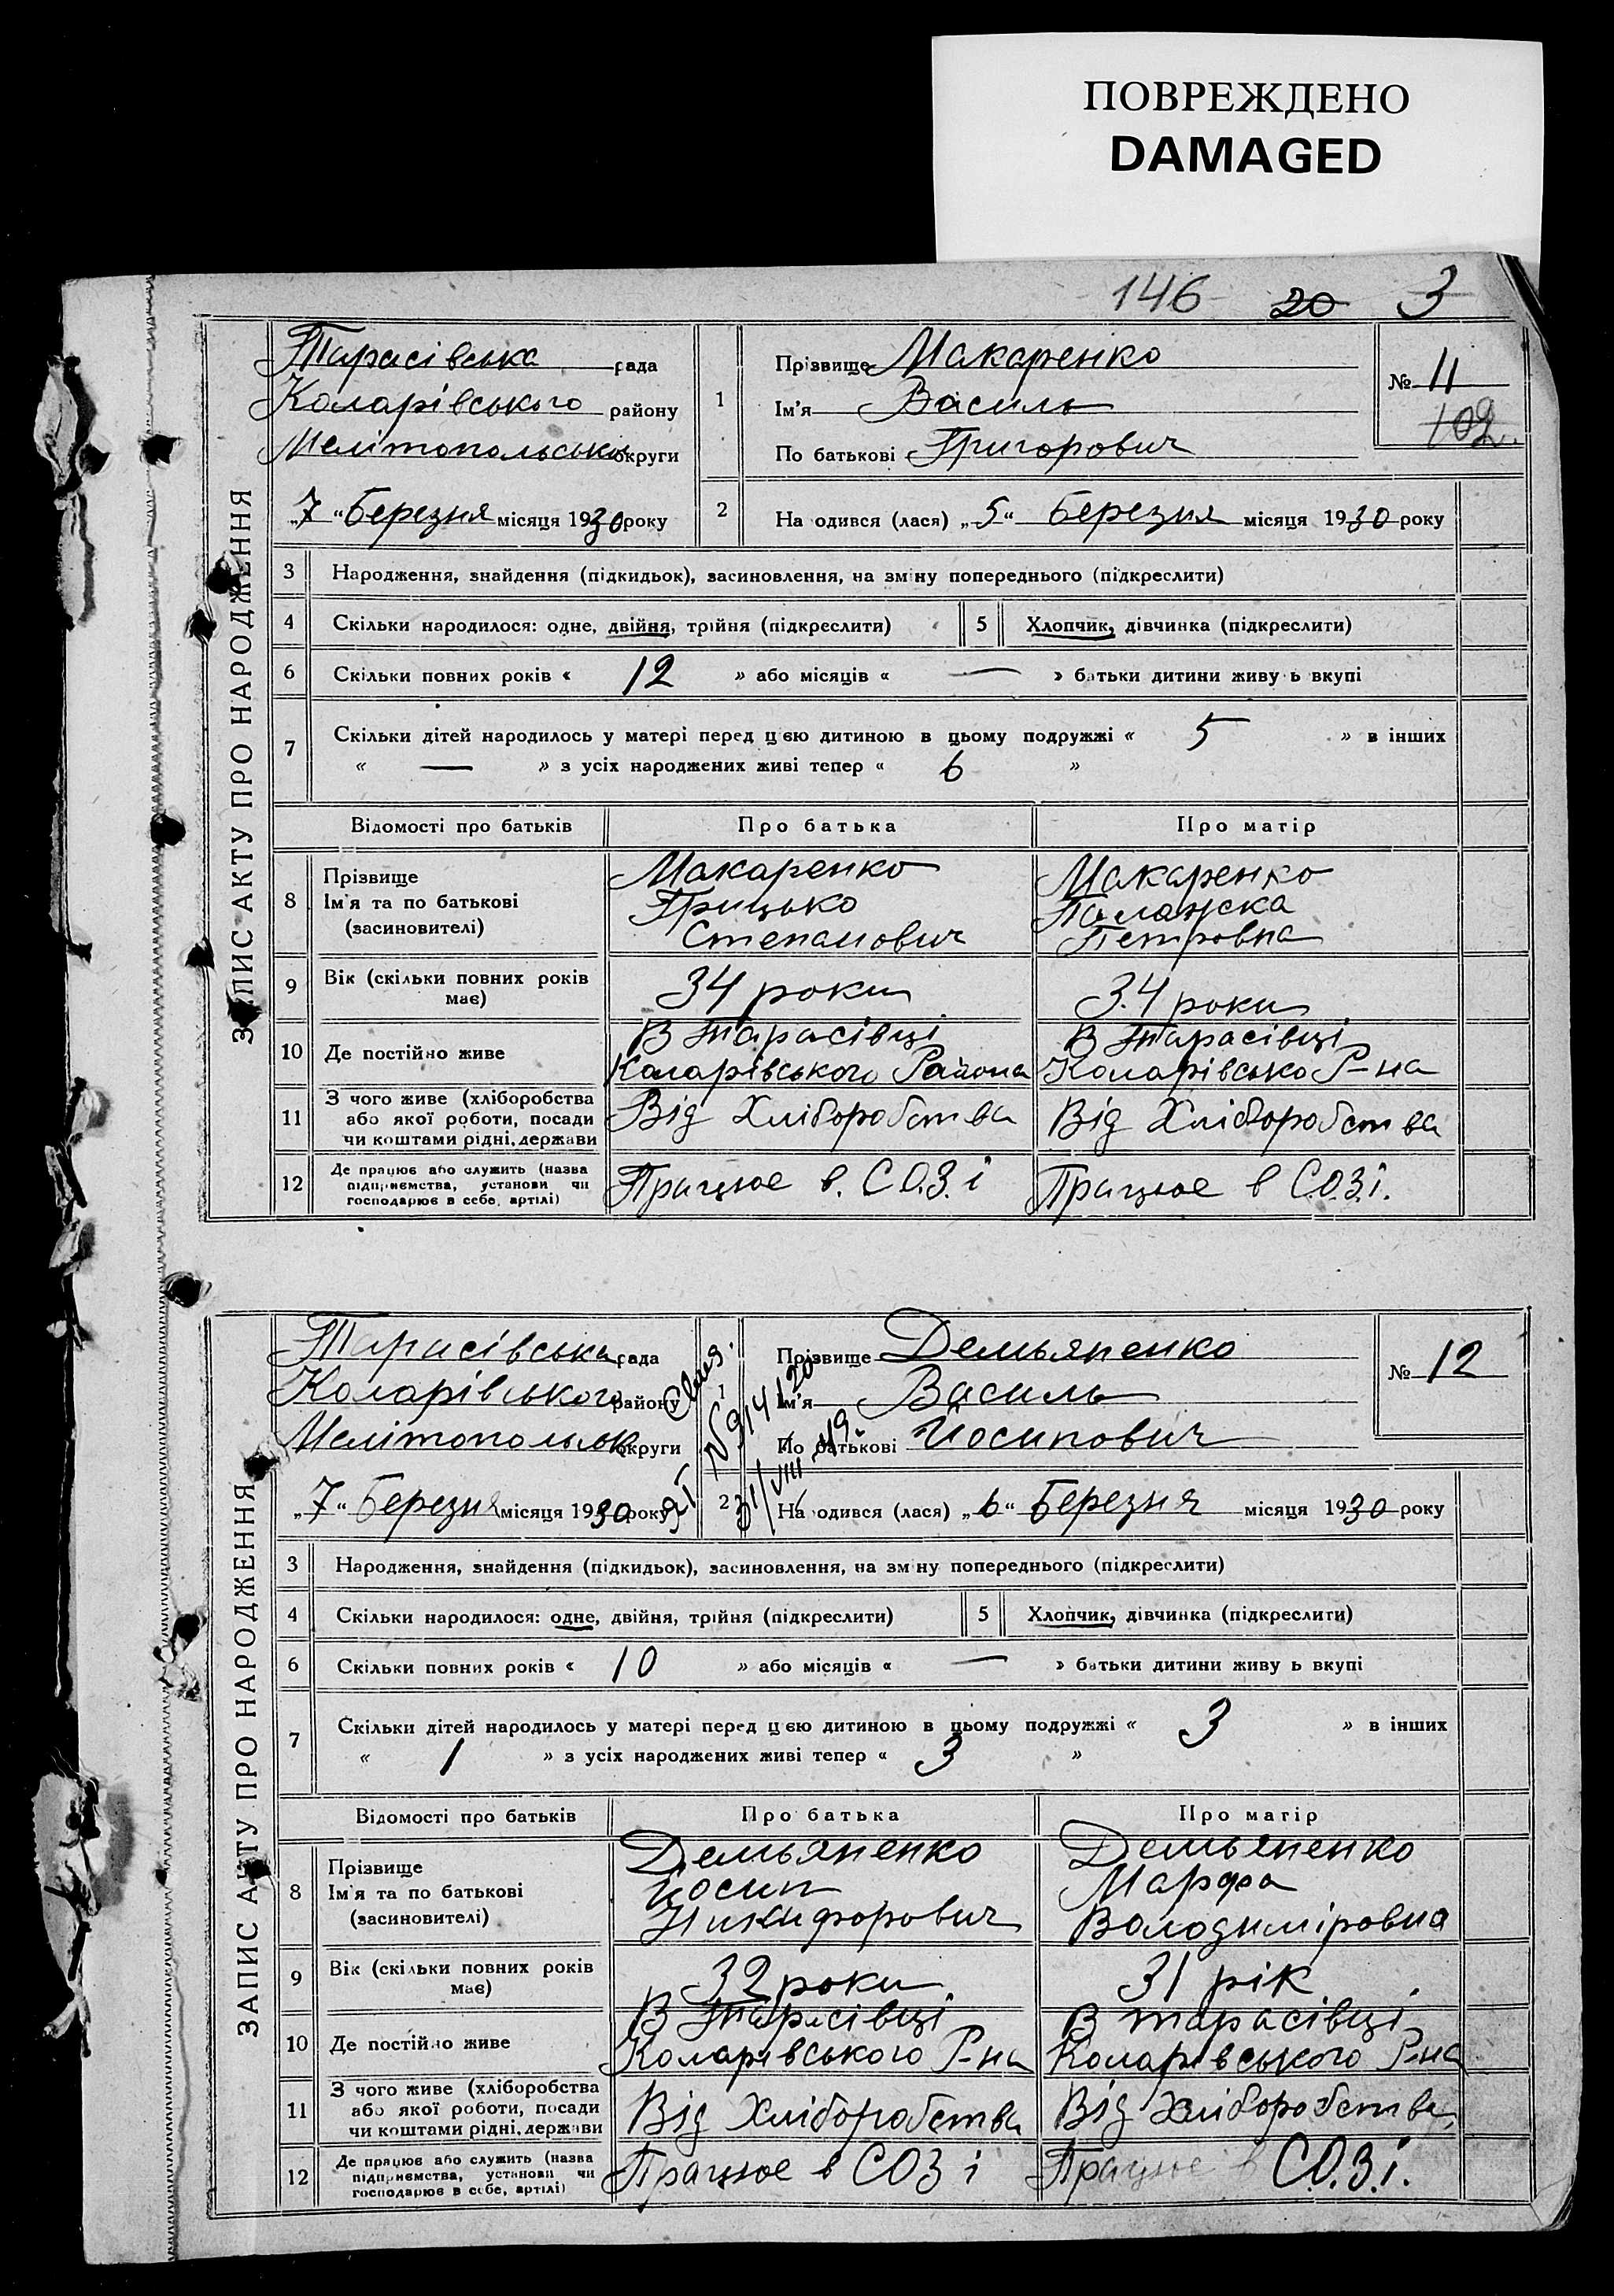 ПОВРЕЖДЕНО
DAMAGED
146 20 3
ЗАПИС АКТУ ПРО НАРОДЖЕННЯ
Тарасівська рада
Коларівського району
Мелітопольсько округи
„7“ Березня місяця 1930 року
1
Прізвище Макаренко
Ім'я Василь
По батькові Григорович
№ 11
102
2 На одився (лася) „5“ Березня місяця 1930 року
3 Народження, знайдення (підкидьок), засиновлення, на зміну попереднього (підкреслити)
4 Скільки народилося: одне, двійня, трійня (підкреслити) 5 Хлопчик, дівчинка (підкреслити)
6 Скільки повних років « 12 » або місяців « — » батьки дитини живу ь вкупі
7 Скільки дітей народилось у матері перед цею дитиною в цьому подружжі « 5 » в інших
« — » з усіх народжених живі тепер « 6 »
Відомості про батьків Про батька Про матір
8 Прізвище Ім'я та по батькові (засиновителі)
Макаренко Грицько Степанович
Макаренко Палажка Петровна
9 Вік (скільки повних років має) 34 роки 34 роки
10 Де постійно живе
В Тарасівці Коларівського Района
В Тарасівці Коларівсько Р-на
11 З чого живе (хліборобства або якої роботи, посади чи коштами рідні, держави
Від Хліборобства Від Хліборобства
12 Де працює або служить (назва підприємства, установи чи господарює в себе, артілі)
Працює в. С.О.З.і Працює в С.О.З.і.
ЗАПИС АКТУ ПРО НАРОДЖЕННЯ
Тарасівська рада
Коларівського району
Мелітопольськ округи
„7“ Березня місяця 1930 року
1
Прізвище Демьяненко
Ім'я Василь
По батькові Йосипович
№ 12
N 914120
31/VIII 49
2 На одився (лася) „6“ Березня місяця 1930 року
3 Народження, знайдення (підкидьок), засиновлення, на зміну попереднього (підкреслити)
4 Скільки народилося: одне, двійня, трійня (підкреслити) 5 Хлопчик, дівчинка (підкреслити)
6 Скільки повних років « 10 » або місяців « — » батьки дитини живу ь вкупі
7 Скільки дітей народилось у матері перед цею дитиною в цьому подружжі « 3 » в інших
« 1 » з усіх народжених живі тепер « 3 »
Відомості про батьків Про батька Про матір
8 Прізвище Ім'я та по батькові (засиновителі)
Демьяненко Йосип Никифорович
Демьяненко Марфа Володиміровна
9 Вік (скільки повних років має) 32 роки 31 рік
10 Де постійно живе
В Тарасівці Коларівського Р-на
В тарасівці Коларівського Р-на
11 З чого живе (хліборобства або якої роботи, посади чи коштами рідні, держави
Від Хліборобства Від Хліборобства
12 Де працює або служить (назва підприємства, установи чи господарює в себе, артілі)
Працює в СОЗ і Працює в С.О.З.і.